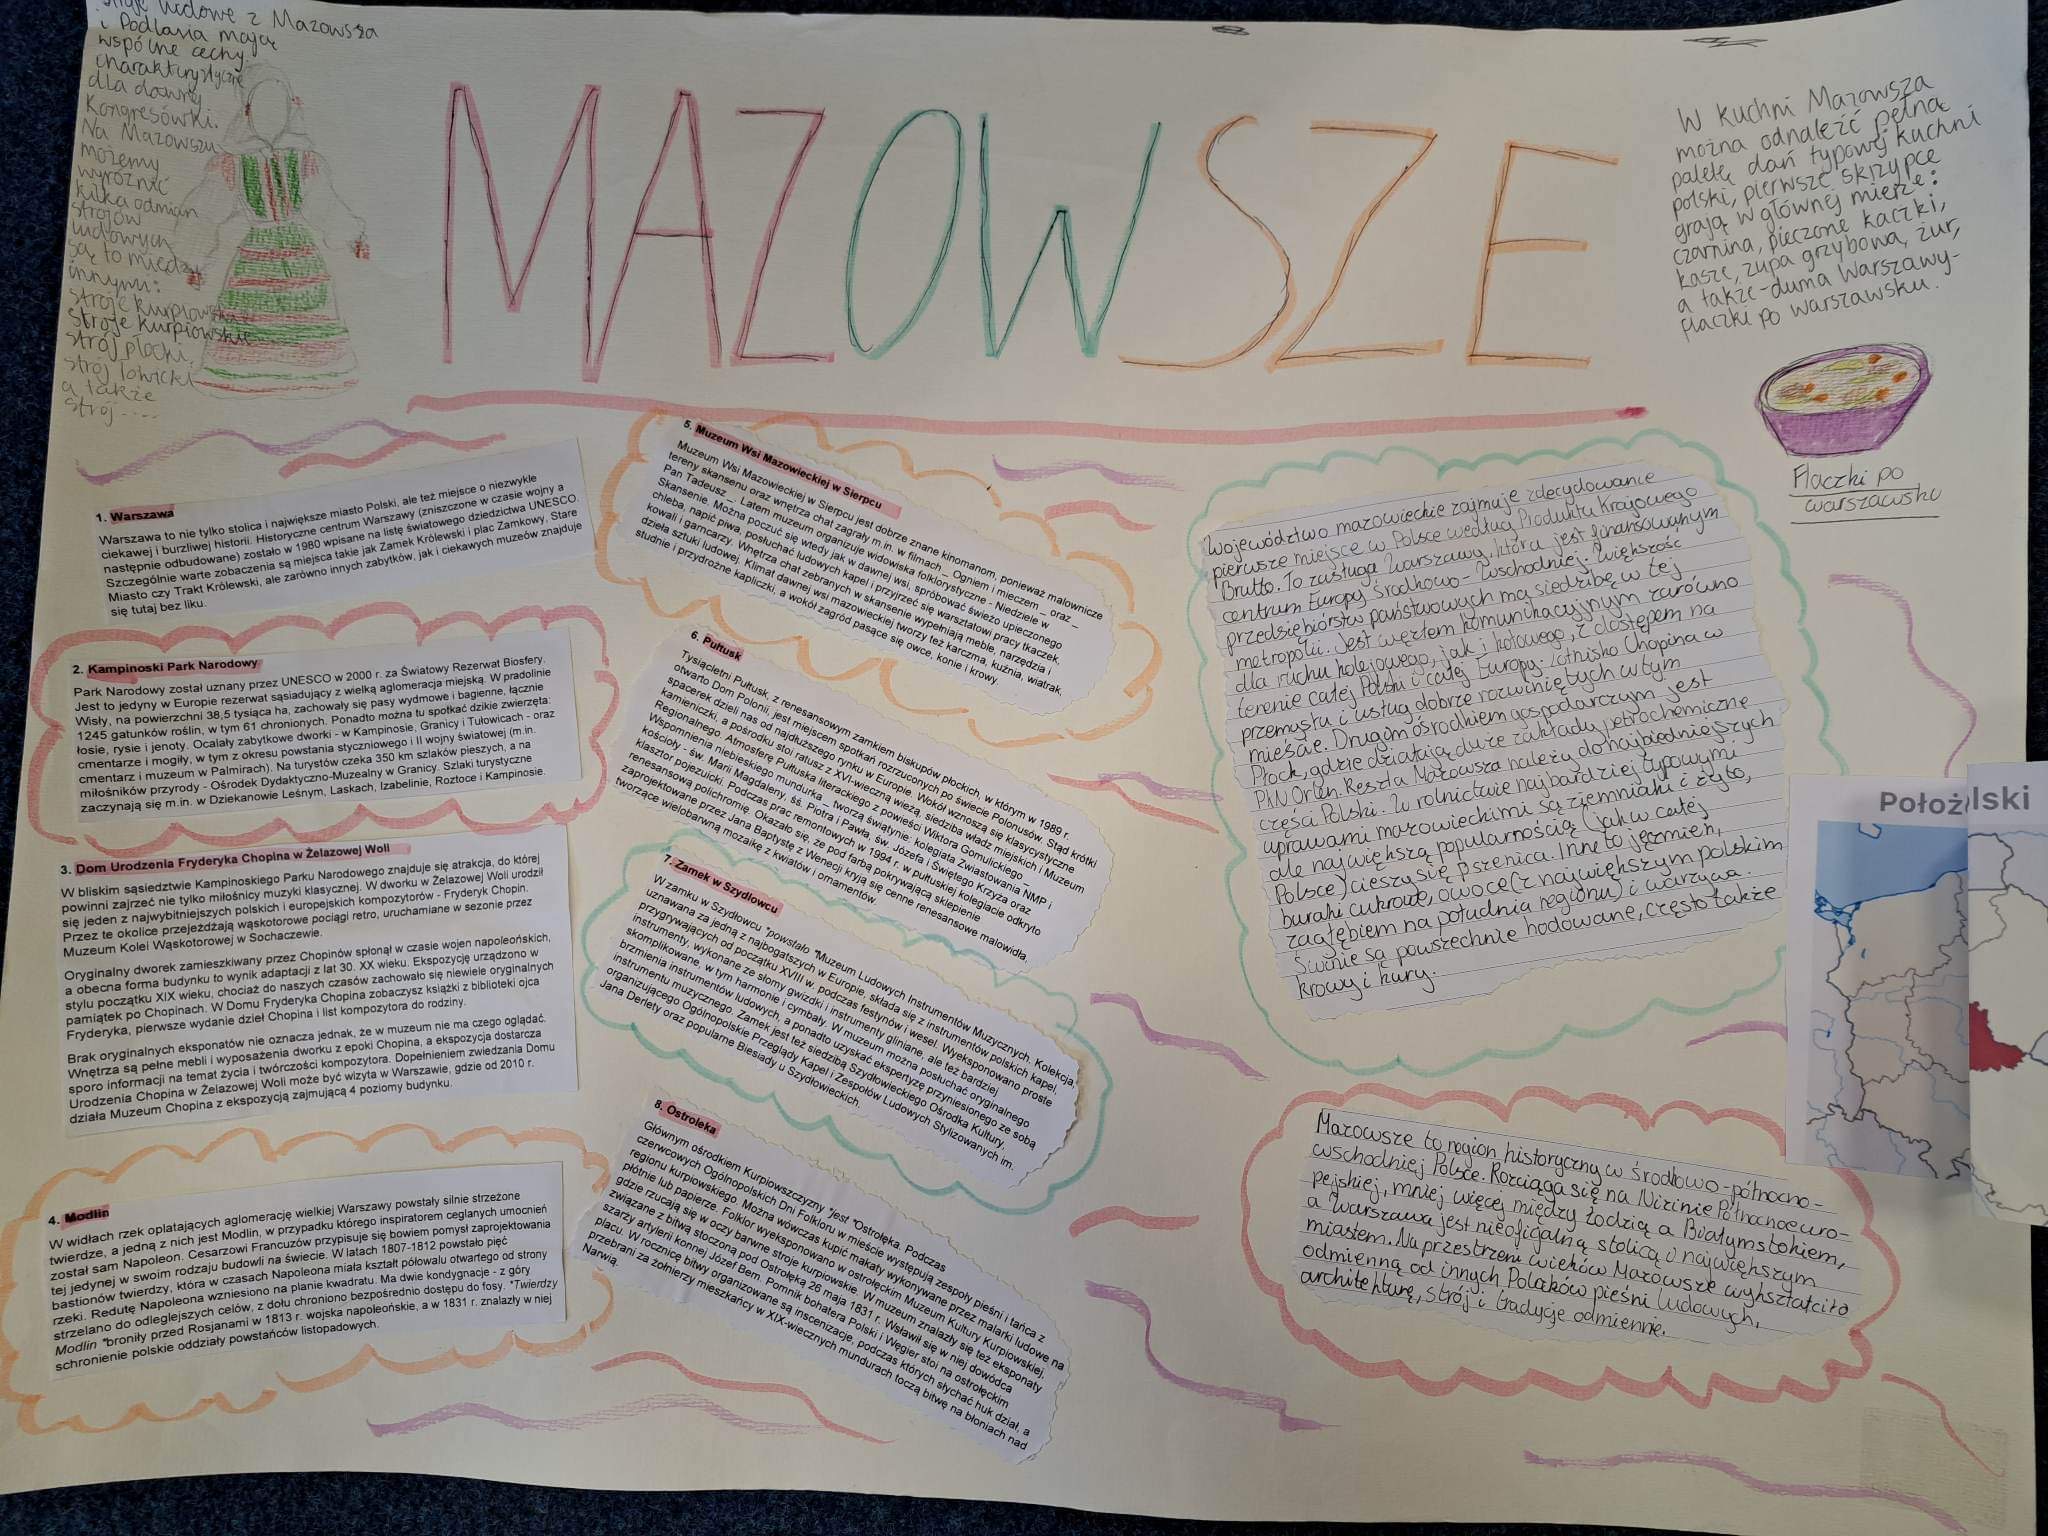 Stroje ludowe z Mazowsza
i Podlasia mają
wspólne cechy
charakterystyczne
dla dawnej
Kongresówki.
Na Mazowszu
możemy
wyróżnić
kilka odmian
strojów
ludowych
są to między
innymi:
stroje kurpiowskie
stroje kurpiowskie
strój płocki,
strój łowicki
a także
strój ....
MAZOWSZE
W kuchni Mazowsza
można odnaleźć pełną
paletę dań typowej kuchni
polski, pierwsze skrzypce
grają w głównej mierze:
czarnina, pieczone kaczki,
kasze, zupa grzybowa, żur,
a także - duma Warszawy -
flaczki po warszawsku.
Flaczki po
warszawsku
1. Warszawa
Warszawa to nie tylko stolica i największe miasto Polski, ale też miejsce o niezwykle
ciekawej i burzliwej historii. Historyczne centrum Warszawy (zniszczone w czasie wojny a
następnie odbudowane) zostało w 1980 wpisane na listę światowego dziedzictwa UNESCO.
Szczególnie warte zobaczenia są miejsca takie jak Zamek Królewski i plac Zamkowy, Stare
Miasto czy Trakt Królewski, ale zarówno innych zabytków, jak i ciekawych muzeów znajduje
się tutaj bez liku.
2. Kampinoski Park Narodowy
Park Narodowy został uznany przez UNESCO w 2000 r. za Światowy Rezerwat Biosfery.
Jest to jedyny w Europie rezerwat sąsiadujący z wielką aglomeracja miejską. W pradolinie
Wisły, na powierzchni 38,5 tysiąca ha, zachowały się pasy wydmowe i bagienne, łącznie
1245 gatunków roślin, w tym 61 chronionych. Ponadto można tu spotkać dzikie zwierzęta:
łosie, rysie i jenoty. Ocalały zabytkowe dworki - w Kampinosie, Granicy i Tułowicach - oraz
cmentarze i mogiły, w tym z okresu powstania styczniowego i II wojny światowej (m.in.
cmentarz i muzeum w Palmirach). Na turystów czeka 350 km szlaków pieszych, a na
miłośników przyrody - Ośrodek Dydaktyczno-Muzealny w Granicy. Szlaki turystyczne
zaczynają się m.in. w Dziekanowie Leśnym, Laskach, Izabelinie, Roztoce i Kampinosie.
3. Dom Urodzenia Fryderyka Chopina w Żelazowej Woli
W bliskim sąsiedztwie Kampinoskiego Parku Narodowego znajduje się atrakcja, do której
powinni zajrzeć nie tylko miłośnicy muzyki klasycznej. W dworku w Żelazowej Woli urodził
się jeden z najwybitniejszych polskich i europejskich kompozytorów - Fryderyk Chopin.
Przez te okolice przejeżdżają wąskotorowe pociągi retro, uruchamiane w sezonie przez
Muzeum Kolei Wąskotorowej w Sochaczewie.
Oryginalny dworek zamieszkiwany przez Chopinów spłonął w czasie wojen napoleońskich,
a obecna forma budynku to wynik adaptacji z lat 30. XX wieku. Ekspozycję urządzono w
stylu początku XIX wieku, chociaż do naszych czasów zachowało się niewiele oryginalnych
pamiątek po Chopinach. W Domu Fryderyka Chopina zobaczysz książki z biblioteki ojca
Fryderyka, pierwsze wydanie dzieł Chopina i list kompozytora do rodziny.
Brak oryginalnych eksponatów nie oznacza jednak, że w muzeum nie ma czego oglądać.
Wnętrza są pełne mebli i wyposażenia dworku z epoki Chopina, a ekspozycja dostarcza
sporo informacji na temat życia i twórczości kompozytora. Dopełnieniem zwiedzania Domu
Urodzenia Chopina w Żelazowej Woli może być wizyta w Warszawie, gdzie od 2010 r.
działa Muzeum Chopina z ekspozycją zajmującą 4 poziomy budynku.
4. Modlin
W widłach rzek oplatających aglomerację wielkiej Warszawy powstały silnie strzeżone
twierdze, a jedną z nich jest Modlin, w przypadku którego inspiratorem ceglanych umocnień
został sam Napoleon. Cesarzowi Francuzów przypisuje się bowiem pomysł zaprojektowania
tej jedynej w swoim rodzaju budowli na świecie. W latach 1807-1812 powstało pięć
bastionów twierdzy, która w czasach Napoleona miała kształt półowalu otwartego od strony
rzeki. Redutę Napoleona wzniesiono na planie kwadratu. Ma dwie kondygnacje - z góry
strzelano do odleglejszych celów, z dołu chroniono bezpośrednio dostępu do fosy. "Twierdzy
Modlin "broniły przed Rosjanami w 1813 r. wojska napoleońskie, a w 1831 r. znalazły w niej
schronienie polskie oddziały powstańców listopadowych.
5. Muzeum Wsi Mazowieckiej w Sierpcu
Muzeum Wsi Mazowieckiej w Sierpcu jest dobrze znane kinomanom, ponieważ malownicze
tereny skansenu oraz wnętrza chat zagrały m.in. w filmach _ Ogniem i mieczem _ oraz _
Pan Tadeusz _. Latem muzeum organizuje widowiska folklorystyczne - Niedziele w
Skansenie. Można poczuć się wtedy jak w dawnej wsi, spróbować świeżo upieczonego
chleba, napić piwa, posłuchać ludowych kapel i przyjrzeć się warsztatowi pracy tkaczek,
kowali i garncarzy. Wnętrza chat zebranych w skansenie wypełniają meble, narzędzia i
dzieła sztuki ludowej. Klimat dawnej wsi mazowieckiej tworzy też karczma, kuźnia, wiatrak,
studnie i przydrożne kapliczki, a wokół zagród pasące się owce, konie i krowy.
6. Pułtusk
Tysiącletni Pułtusk, z renesansowym zamkiem biskupów płockich, w którym w 1989 r.
otwarto Dom Polonii, jest miejscem spotkań rozrzuconych po świecie Polonusów. Stąd krótki
spacerek dzieli nas od najdłuższego rynku w Europie. Wokół wznoszą się klasycystyczne
kamieniczki, a pośrodku stoi ratusz z XVI-wieczną wieżą, siedziba władz miejskich i Muzeum
Regionalnego. Atmosferę Pułtuska literackiego z powieści Wiktora Gomulickiego _
Wspomnienia niebieskiego mundurka_ tworzą świątynie: kolegiata Zwiastowania NMP i
kościoły - św. Marii Magdaleny, śś. Piotra i Pawła, św. Józefa i Świętego Krzyża oraz
klasztor pojezuicki. Podczas prac remontowych w 1994 r. w pułtuskiej kolegiacie odkryto
renesansową polichromię. Okazało się, że pod farbą pokrywającą sklepienie
zaprojektowane przez Jana Baptystę z Wenecji kryją się cenne renesansowe malowidła,
tworzące wielobarwną mozaikę z kwiatów i ornamentów.
7. Zamek w Szydłowcu
W zamku w Szydłowcu "powstało "Muzeum Ludowych Instrumentów Muzycznych. Kolekcja,
uznawana za jedną z najbogatszych w Europie, składa się z instrumentów polskich kapel,
przygrywających od początku XVIII w. podczas festynów i wesel. Wyeksponowano proste
instrumenty, wykonane ze słomy gwizdki i instrumenty gliniane, ale też bardziej
skomplikowane, w tym harmonie i cymbały. W muzeum można posłuchać oryginalnego
brzmienia instrumentów ludowych, a ponadto uzyskać ekspertyzę przyniesionego ze sobą
instrumentu muzycznego. Zamek jest też siedzibą Szydłowieckiego Ośrodka Kultury,
organizującego Ogólnopolskie Przeglądy Kapel i Zespołów Ludowych Stylizowanych im.
Jana Derlety oraz popularne Biesiady u Szydłowieckich.
8. Ostrołęka
Głównym ośrodkiem Kurpiowszczyzny "jest "Ostrołęka. Podczas
czerwcowych Ogólnopolskich Dni Folkloru w mieście występują zespoły pieśni i tańca z
regionu kurpiowskiego. Można wówczas kupić makaty wykonywane przez malarki ludowe na
płótnie lub papierze. Folklor wyeksponowano w ostrołęckim Muzeum Kultury Kurpiowskiej,
gdzie rzucają się w oczy barwne stroje kurpiowskie. W muzeum znalazły się też eksponaty
związane z bitwą stoczoną pod Ostrołęką 26 maja 1831 r. Wsławił się w niej dowódca
szarży artylerii konnej Józef Bem. Pomnik bohatera Polski i Węgier stoi na ostrołęckim
placu. W rocznicę bitwy organizowane są inscenizacje, podczas których słychać huk dział, a
przebrani za żołnierzy mieszkańcy w XIX-wiecznych mundurach toczą bitwę na błoniach nad
Narwią.
Województwo mazowieckie zajmuje zdecydowanie
pierwsze miejsce w Polsce według Produktu Krajowego
Brutto. To zasługa Warszawy, która jest finansowanym
centrum Europy Środkowo-Wschodniej. Większość
przedsiębiorstw państwowych ma siedzibę w tej
metropolii. Jest węzłem komunikacyjnym zarówno
dla ruchu kolejowego, jak i kołowego, z dostępem na
terenie całej Polski i całej Europy. Lotnisko Chopina w
przemysłu i usług dobrze rozwiniętych w tym
mieście. Drugim ośrodkiem gospodarczym jest
Płock, gdzie działają duże zakłady petrochemiczne
PKN Orlen. Reszta Mazowsza należy do najbiedniejszych
części Polski. W rolnictwie najbardziej typowymi
uprawami mazowieckimi są ziemniaki i żyto,
ale największą popularnością (jak w całej
Polsce) cieszy się pszenica. Inne to jęczmień,
buraki cukrowe, owoce (z największym polskim
zagłębiem na południu regionu) i warzywa.
Świnie są powszechnie hodowane, często także
krowy i kury.
Położ
lski
Mazowsze to region historyczny w środkowo-północno-
wschodniej Polsce. Rozciąga się na Nizinie Północnoeuro-
pejskiej, mniej więcej między Łodzią a Białymstokiem,
a Warszawa jest nieoficjalną stolicą i największym
miastem. Na przestrzeni wieków Mazowsze wykształciło
odmienną od innych Polaków pieśni ludowych,
architekturę, strój i tradycje odmiennie.